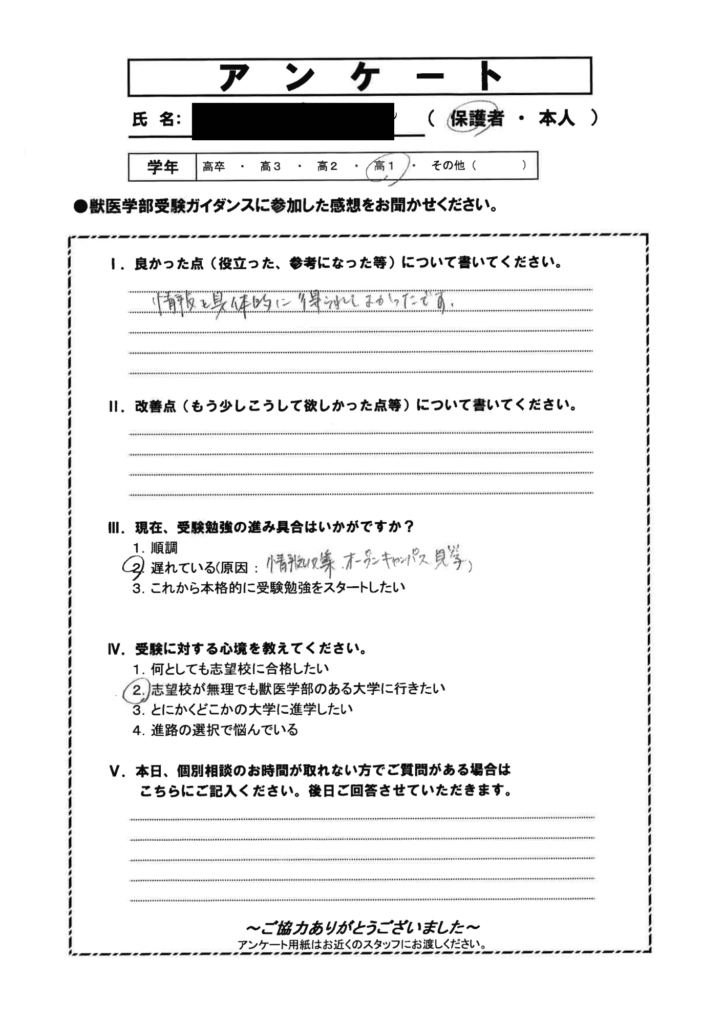 アンケート
氏名: （ 保護者 ・ 本人 ）
学年 高卒 ・ 高3 ・ 高2 ・ 高1 ・ その他（ ）
●獣医学部受験ガイダンスに参加した感想をお聞かせください。
Ⅰ．良かった点（役立った、参考になった等）について書いてください。
情報を具体的に得られてよかったです.
Ⅱ．改善点（もう少しこうして欲しかった点等）について書いてください。
Ⅲ．現在、受験勉強の進み具合はいかがですか？
1．順調
2．遅れている(原因： 情報収集、オープンキャンパス見学)
3．これから本格的に受験勉強をスタートしたい
Ⅳ．受験に対する心境を教えてください。
1．何としても志望校に合格したい
2．志望校が無理でも獣医学部のある大学に行きたい
3．とにかくどこかの大学に進学したい
4．進路の選択で悩んでいる
Ⅴ．本日、個別相談のお時間が取れない方でご質問がある場合は
こちらにご記入ください。後日ご回答させていただきます。
～ご協力ありがとうございました～
アンケート用紙はお近くのスタッフにお渡しください。